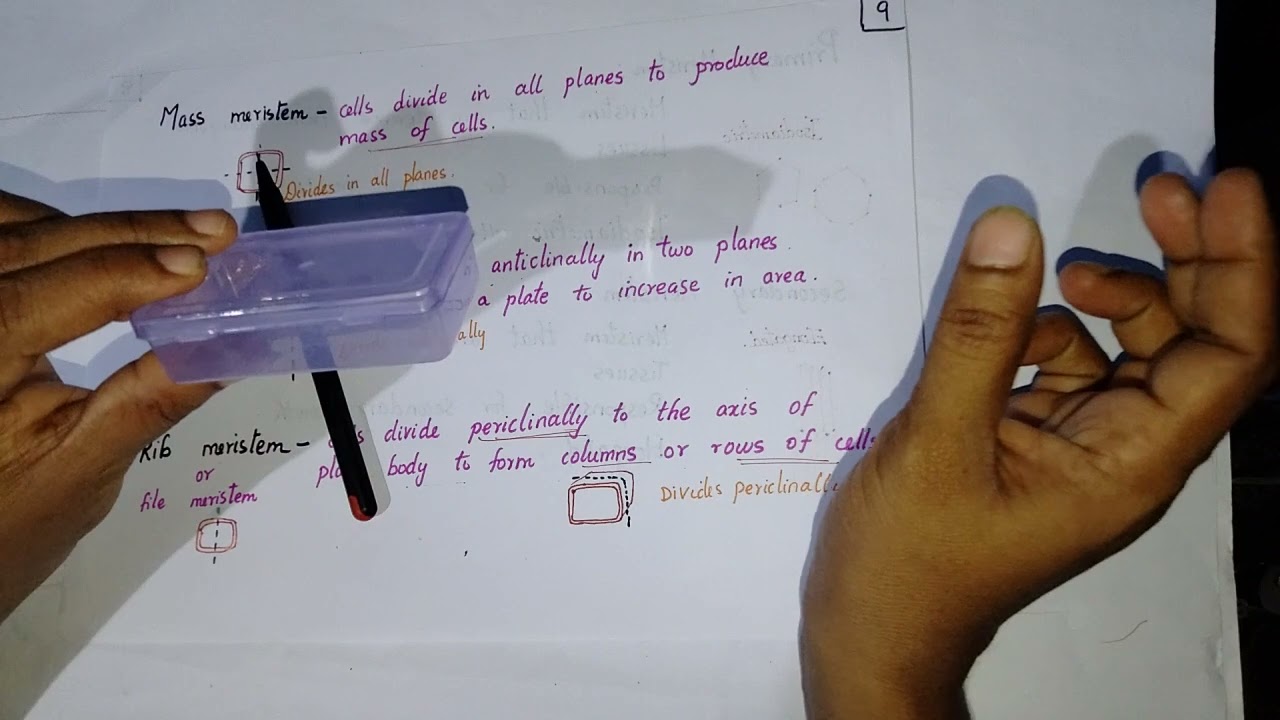 9
Mass meristem - cells divide in all planes to produce
mass of cells.
Divides in all planes.
anticlinally in two planes.
a plate to increase in area.
ally
Rib meristem - divide periclinally to the axis of
or body to form columns or rows of cells
file meristem
Divides periclinall